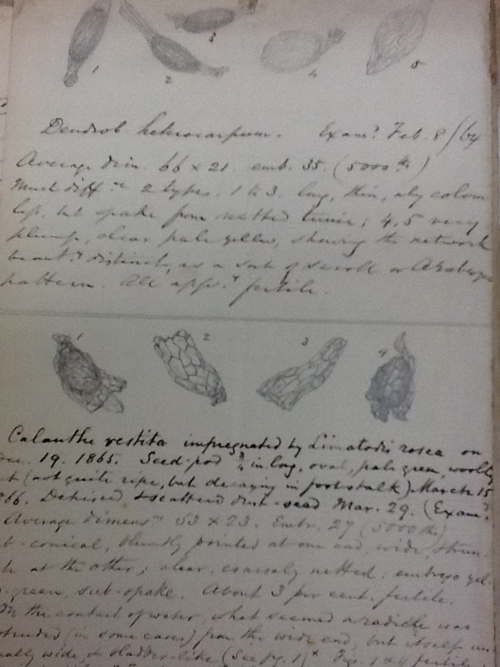 1 2 3 4 5
Dendrob. heterocarpum. Exam.d Feb. 8/64
Average dim. 66 x 21. emb. 35. (5000ths)
Much diff.ce 2 types. 1 to 3. long, thin, colour
less, but opake from netted tunic; 4, 5 very
plump, clear pale yellow, showing the network
beaut.y distinct, as a sort of scroll or Arabesque
pattern. All app.y fertile.
1 2 3 4
Calanthe vestita impregnated by Limatodis rosea on
Dec. 19. 1865. Seed-pod in. long, oval, pale green, woolly
(not quite ripe, but decaying in footstalk) March 15
866. Dehisced & scattered dust-seed Mar. 29. (Exam.d
Average dimens.ns 53 x 23. Embr. 27 (5000ths)
b-conical, bluntly pointed at one end, wide,
h at the other; clear, coarsely netted; embryo yel
green, sub-opake. About 3 per cent. fertile.
On the contact of water, what seemed a radicle was
truded (in some cases) from the wide end, but itself
ally wide, & bladder-like (See fig. 1) x Fig. 1